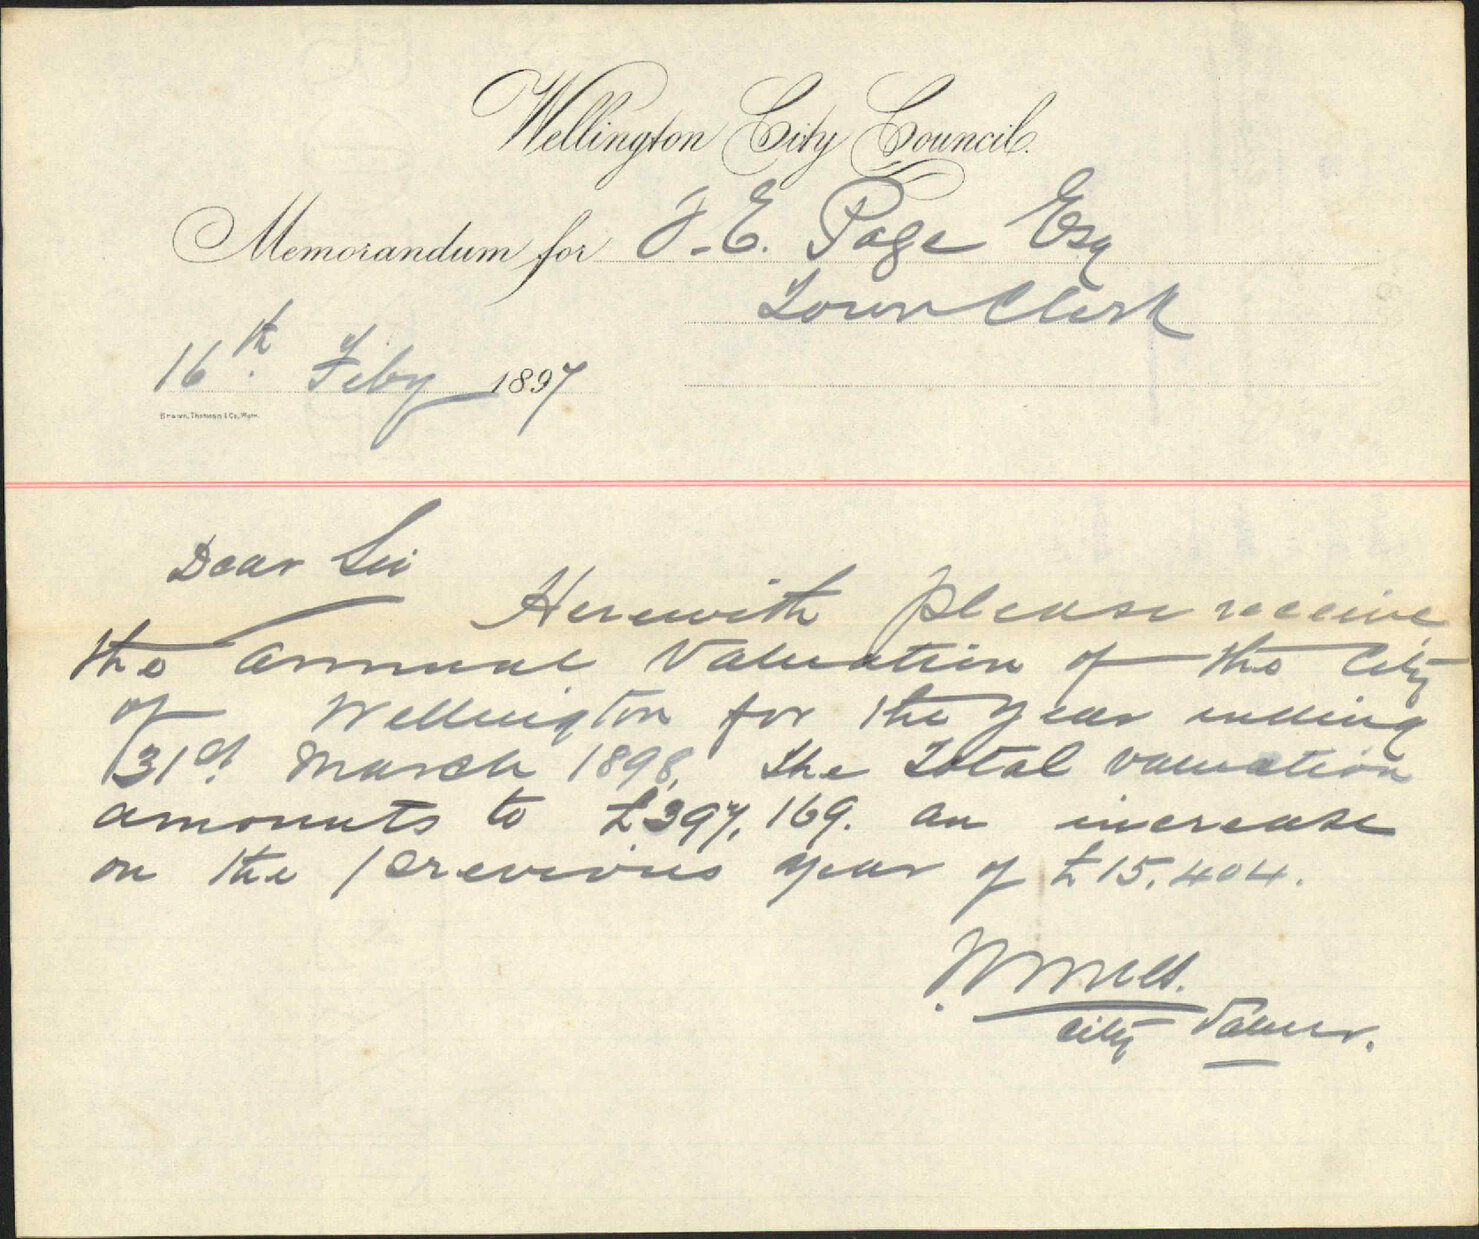 Wellington City Council.
Memorandum for J. E. Page Esq
Town Clerk
16th. Feby 1897
Brown, Thomson & Co, Wgtn.
Dear Sir
Herewith please receive
the annual Valuation of the City
of Wellington for the year ending
31st March 1898, the Total valuation
amounts to £397,169. an increase
on the previous year of £15.404.
City Valuer.